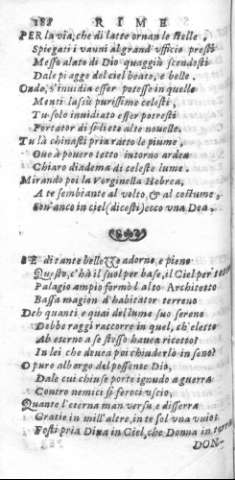 188 RIME
PER la via, che di latte ornan le stelle,
Spiegati i vanni al grand' ufficio presti
Messo alato di Dio quaggiù scendesti
Dale piagge del ciel beate, e belle.
Onde, s'invidia esser potesse in quelle
Menti lassù purissime celesti,
Tu solo invidiato esser potresti
Portator di sì liete alte novelle.
Tu là chinasti pria ratto le piume,
Ove à povero tetto intorno ardea
Chiaro diadema di celeste lume.
Mirando poi la Verginella Hebrea,
A te sembiante al volto, & al costume,
Con'anco in ciel (dicesti) ecco una Dea.
SE di tante bellezze adorno, e pieno
Questo, c'hà il suol per base, il Ciel per tetto
Palagio ampio formò l'alto Architetto
Bassa magion d'habitator terreno
Deh quanti e quai del lume suo sereno
Debbo raggi raccorre in quel, ch'eletto
Ab eterno a se stesso havea ricetto?
In lei che devea poi chiuderlo in seno?
O puro albergo del possente Dio,
Dale cui chiuse porte ignudo a guerra
Contro nemici sì feroci uscio,
Quante l'eterna man versa e disserra
Gratie in mill'altre, in te sol una unio:
Fosti pria Diva in Ciel, che Donna in terra
DON-